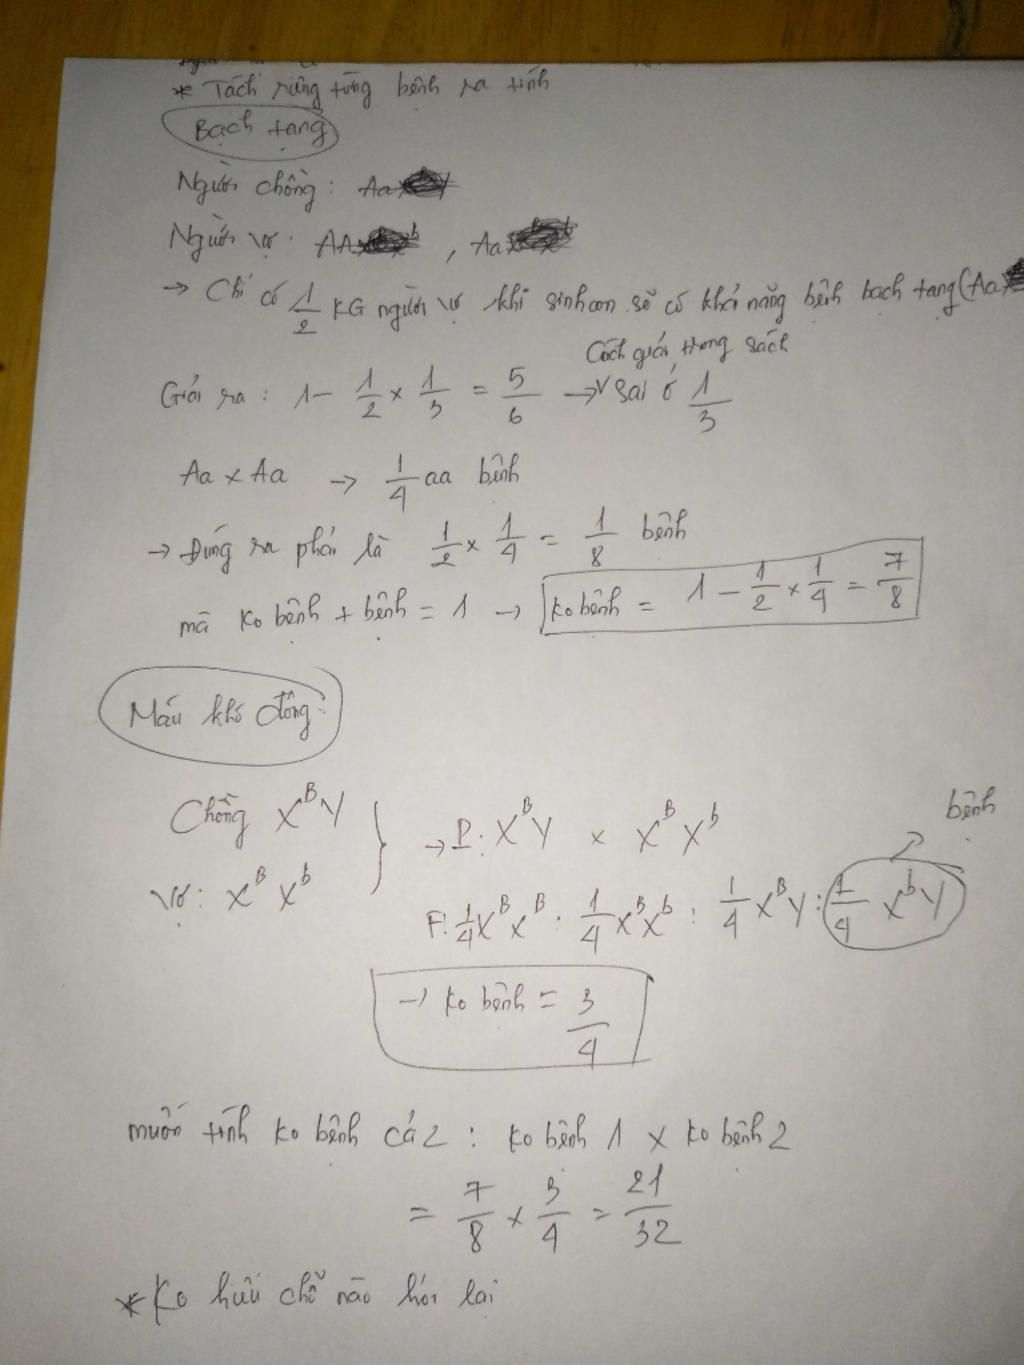 * Tách riêng từng bệnh ra tính
Bạch tạng
Người chồng: Aa
Người vợ: AA , Aa
→ Chỉ có 1/2 KG người vợ khi sinh con sẽ có khả năng bệnh bạch tạng (Aa
Cách giải trong sách
Giải ra: 1 - 1/2 × 1/3 = 5/6 → sai ở 1/3
Aa × Aa → 1/4 aa bệnh
→ Đúng ra phải là 1/2 × 1/4 = 1/8 bệnh
mà ko bệnh + bệnh = 1 → ko bệnh = 1 - 1/2 × 1/4 = 7/8
Máu khó đông:
Chồng X^B Y } → P: X^B Y × X^B X^b
bệnh
Vợ: X^B X^b
F: 1/4 X^B X^B : 1/4 X^B X^b : 1/4 X^B Y : 1/4 X^b Y
→ ko bệnh = 3/4
muốn tính ko bệnh cả 2 : ko bệnh 1 × ko bệnh 2
= 7/8 × 3/4 = 21/32
* Ko hiểu chỗ nào hỏi lại